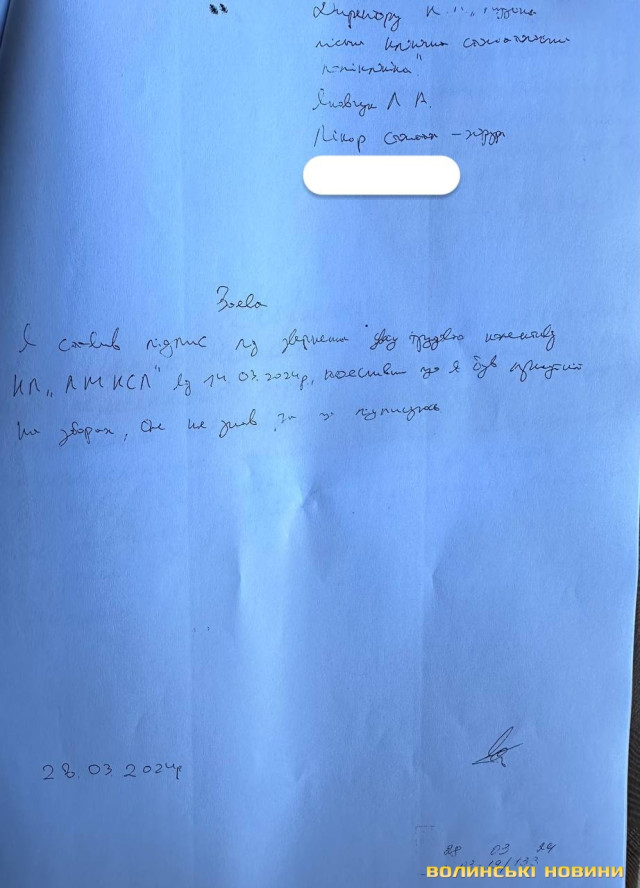 Директору К.П. „
міська клінічна стоматологічна
поліклініка"
Яковчук Л А.
Лікар стомат – хірург
Заява
Я ставив підпис під звернення трудового колективу
КП „ЛМКСП" від 14.03.2024р, що я був присутній
на зборах, але не знав, за що підписуюсь
28.03 2024р
28 03 24
ВОЛИНСЬКІ НОВИНИ